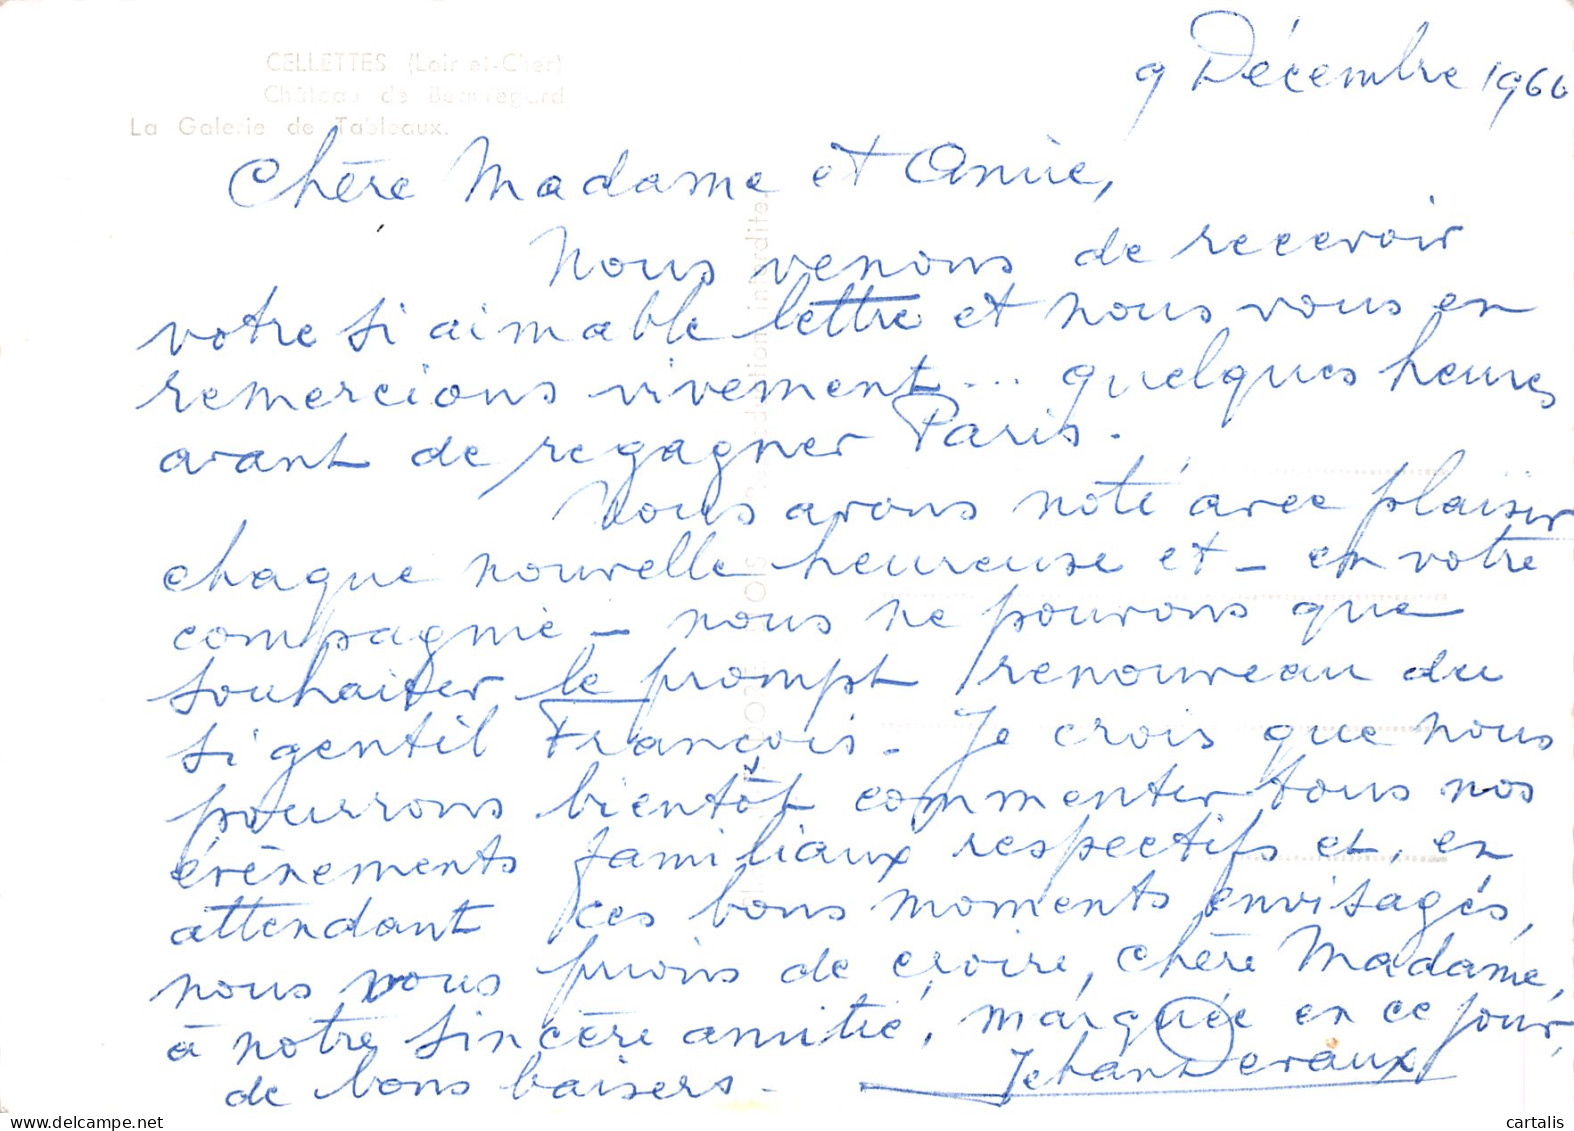 CELLETTES (Loir-et-Cher)
Château de Beauregard
La Galerie de Tableaux.
9 Décembre 1966
Chère Madame et Amie,
Nous venons de recevoir
votre si aimable lettre et nous vous en
remercions vivement... quelques heures
avant de regagner Paris.
Nous avons noté avec plaisir
chaque nouvelle heureuse et – en votre
compagnie – nous ne pouvons que
souhaiter le prompt renouveau du
si gentil François. Je crois que nous
pourrons bientôt commenter tous nos
évènements familiaux respectifs et, en
attendant ces bons moments envisagés,
nous vous prions de croire, chère Madame,
à notre sincère amitié, marquée en ce jour,
de bons baisers.
Jehan Devaux
interdite.
delcampe.net
cartalis